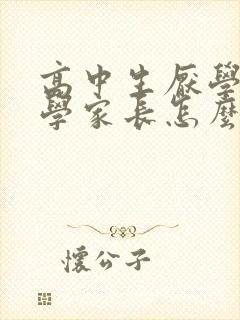 高中生厭學
學家長怎麼
懷公子